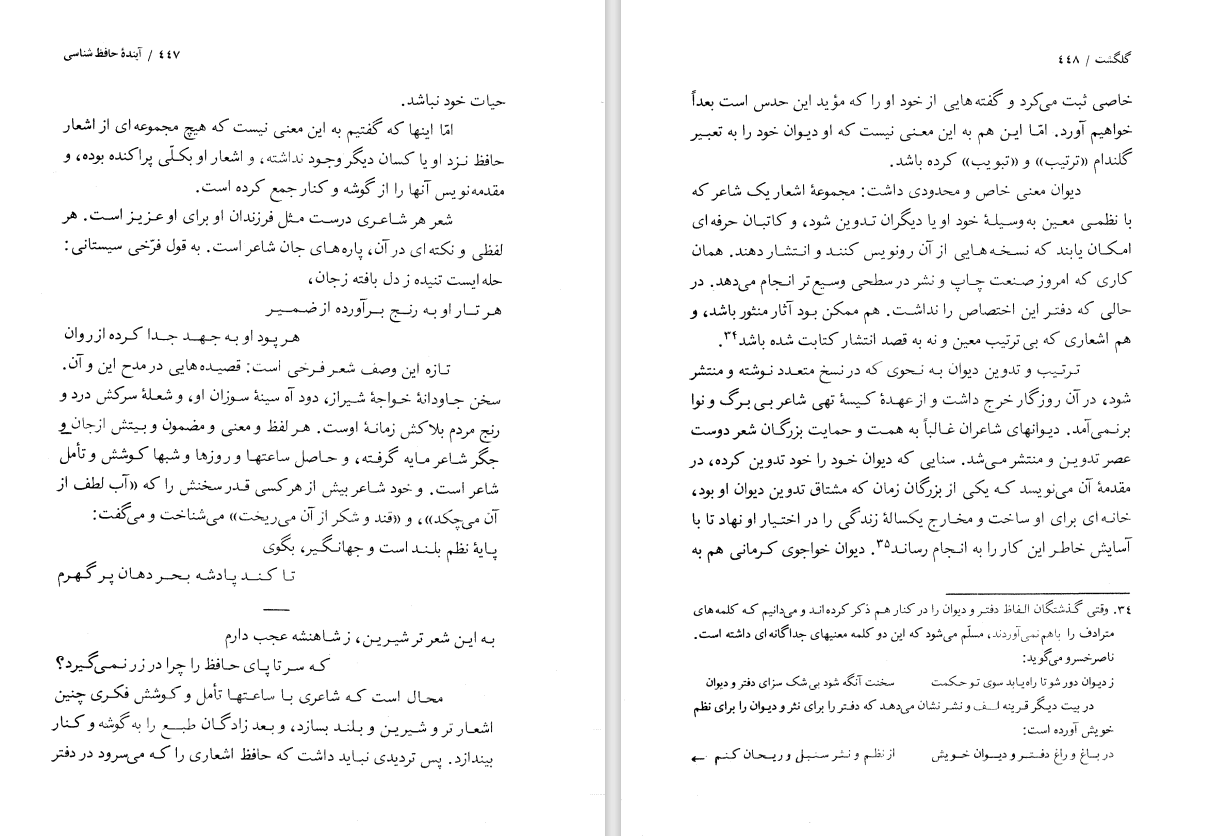 ۴۴۷ / آیندهٔ حافظ شناسی
حیات خود نباشد.
امّا اینها که گفتیم به این معنی نیست که هیچ مجموعه ای از اشعار
حافظ نزد او یا کسان دیگر وجود نداشته، و اشعار او بکلّی پراکنده بوده، و
مقدمه نویس آنها را از گوشه و کنار جمع کرده است.
شعر هر شاعری درست مثل فرزندان او برای او عزیز است. هر
لفظی و نکته ای در آن، پاره های جان شاعر است. به قول فرّخی سیستانی:
حله ایست تنیده ز دل بافته زجان،
هر تار او به رنج برآورده از ضمیر
هر پود او به جهد جدا کرده از روان
تازه این وصف شعر فرخی است: قصیده هایی در مدح این و آن.
سخن جاودانهٔ خواجهٔ شیراز، دود آه سینهٔ سوزان او، و شعلهٔ سرکش درد و
رنج مردم بلاکش زمانهٔ اوست. هر لفظ و معنی و مضمون و بیتش ازجان و
جگر شاعر مایه گرفته، و حاصل ساعتها و روزها و شبها کوشش و تأمل
شاعر است. و خود شاعر بیش از هرکسی قدر سخنش را که «آب لطف از
آن می چکد»، و «قند و شکر از آن می ریخت» می شناخت و می گفت:
پایهٔ نظم بلند است و جهانگیر، بگوی
تا کند پادشه بحر دهان پر گهرم
به این شعر تر شیرین، ز شاهنشه عجب دارم
که سر تا پای حافظ را چرا در زر نمی گیرد؟
محال است که شاعری با ساعتها تأمل و کوشش فکری چنین
اشعار تر و شیرین و بلند بسازد، و بعد زادگان طبع را به گوشه و کنار
بیندازد. پس تردیدی نباید داشت که حافظ اشعاری را که می سرود در دفتر
گلگشت / ۴۴۸
خاصی ثبت می کرد و گفته هایی از خود او را که مؤید این حدس است بعداً
خواهیم آورد. امّا این هم به این معنی نیست که او دیوان خود را به تعبیر
گلندام «ترتیب» و «تبویب» کرده باشد.
دیوان معنی خاص و محدودی داشت: مجموعهٔ اشعار یک شاعر که
با نظمی معین به وسیلهٔ خود او یا دیگران تدوین شود، و کاتبان حرفه ای
امکان یابند که نسخه هایی از آن رونویس کنند و انتشار دهند. همان
کاری که امروز صنعت چاپ و نشر در سطحی وسیع تر انجام می دهد. در
حالی که دفتر این اختصاص را نداشت. هم ممکن بود آثار منثور باشد، و
هم اشعاری که بی ترتیب معین و نه به قصد انتشار کتابت شده باشد۳۴.
ترتیب و تدوین دیوان به نحوی که در نسخ متعدد نوشته و منتشر
شود، در آن روزگار خرج داشت و از عهدهٔ کیسهٔ تهی شاعر بی برگ و نوا
برنمی آمد. دیوانهای شاعران غالباً به همت و حمایت بزرگان شعر دوست
عصر تدوین و منتشر می شد. سنایی که دیوان خود را خود تدوین کرده، در
مقدمهٔ آن می نویسد که یکی از بزرگان زمان که مشتاق تدوین دیوان او بود،
خانه ای برای او ساخت و مخارج یکسالهٔ زندگی را در اختیار او نهاد تا با
آسایش خاطر این کار را به انجام رساند۳۵. دیوان خواجوی کرمانی هم به
۳۴. وقتی گذشتگان الفاظ دفتر و دیوان را در کنار هم ذکر کرده اند و می دانیم که کلمه های
مترادف را باهم نمی آوردند، مسلّم می شود که این دو کلمه معنیهای جداگانه ای داشته است.
ناصرخسرو می گوید:
ز دیوان دور شو تا راه یابد سوی تو حکمت سخنت آنگه شود بی شک سزای دفتر و دیوان
در بیت دیگر قرینه لف و نشر نشان می دهد که دفتر را برای نثر و دیوان را برای نظم
خویش آورده است:
در باغ و راغ دفتر و دیوان خویش از نظم و نثر سنبل و ریحان کنم ←